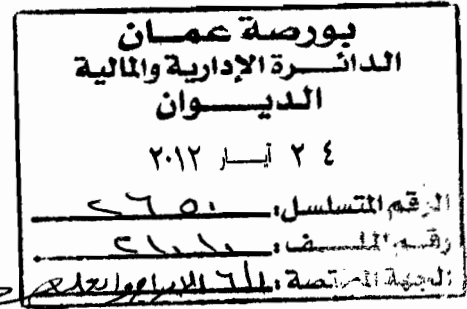 بورصة عمان
الدائرة الإدارية والمالية
الديوان
٢٤ أيار ٢٠١٢
الرقم المتسلسل: ٢٦٥٠
رقم الملف:
الجهة المختصة: